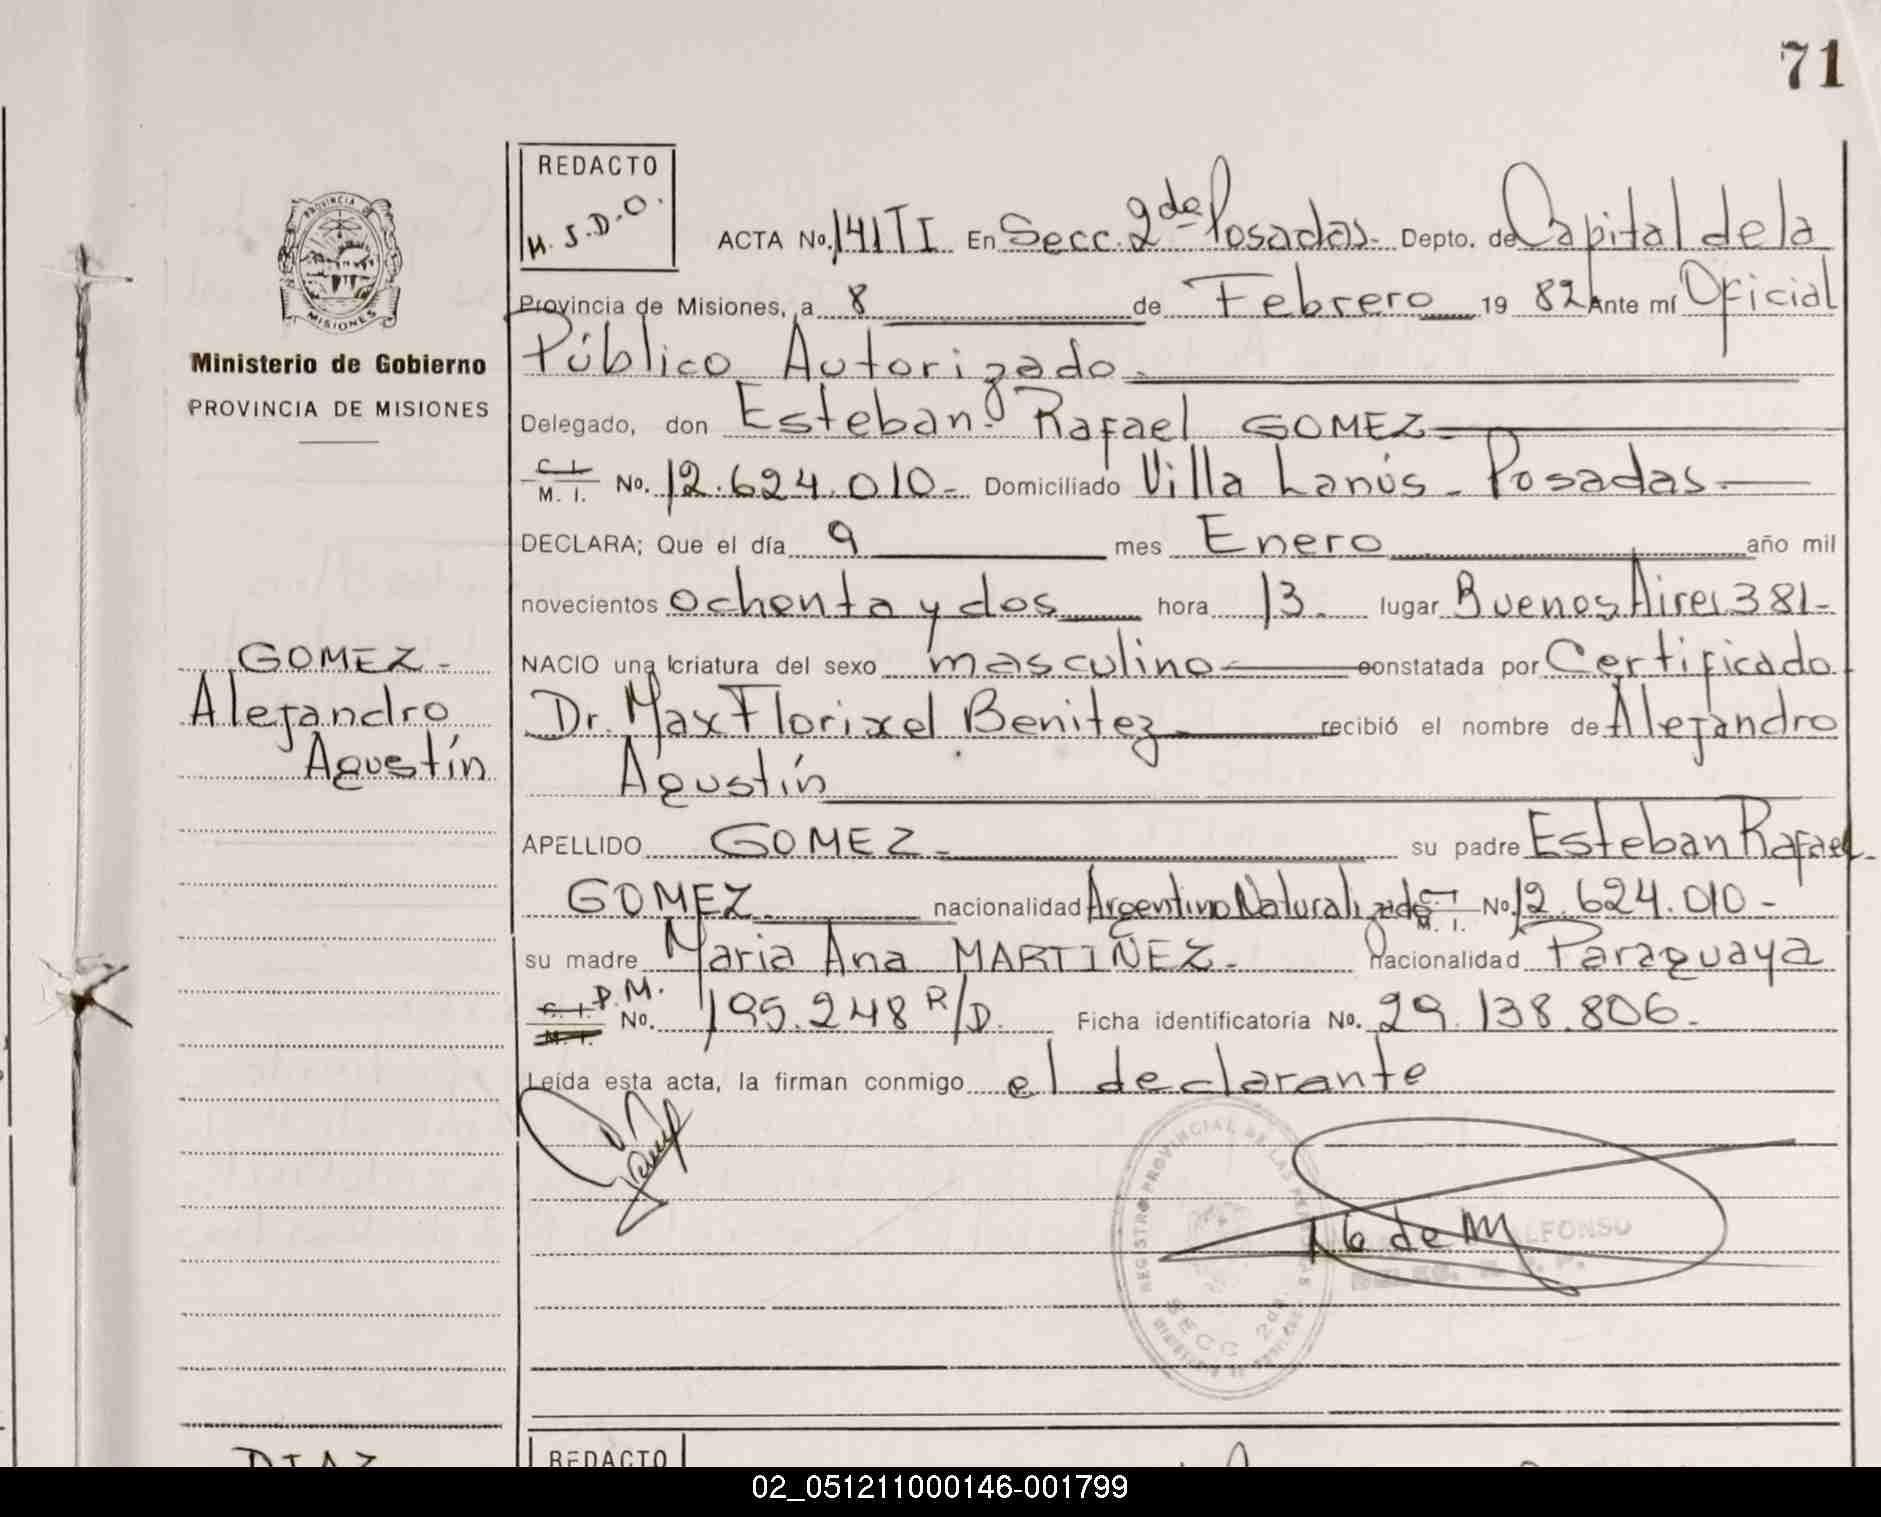 71
REDACTO
H. S. D. O.
ACTA No. 141 TI En Secc. 2da Posadas. Depto. de Capital de la
PROVINCIA DE
MISIONES
Provincia de Misiones, a 8 de Febrero 19 82 Ante mí Oficial
Ministerio de Gobierno
Público Autorizado.
PROVINCIA DE MISIONES
Delegado, don Esteban Rafael GOMEZ
C. I. M. I. No. 12.624.010- Domiciliado Villa Lanús - Posadas.
DECLARA; Que el día 9 mes Enero año mil
novecientos ochenta y dos hora 13. lugar Buenos Aires 381-
GOMEZ -
NACIO una criatura del sexo masculino constatada por Certificado
Alejandro
Dr. Max Florixel Benitez recibió el nombre de Alejandro
Agustín
Agustín
APELLIDO GOMEZ - su padre Esteban Rafael
GOMEZ nacionalidad Argentino Naturalizado C. I. M. I. No. 12.624.010-
su madre Maria Ana MARTIÑEZ - Nacionalidad Paraguaya
C. I. M. I. D.M. No. 195.248 R/D. Ficha identificatoria No. 29.138.806.
Leída esta acta, la firman conmigo el declarante
REGISTRO PROVINCIAL DE LAS PERSONAS
SECC 2da
ALFONSO
DIAZ
REDACTO
02_051211000146-001799